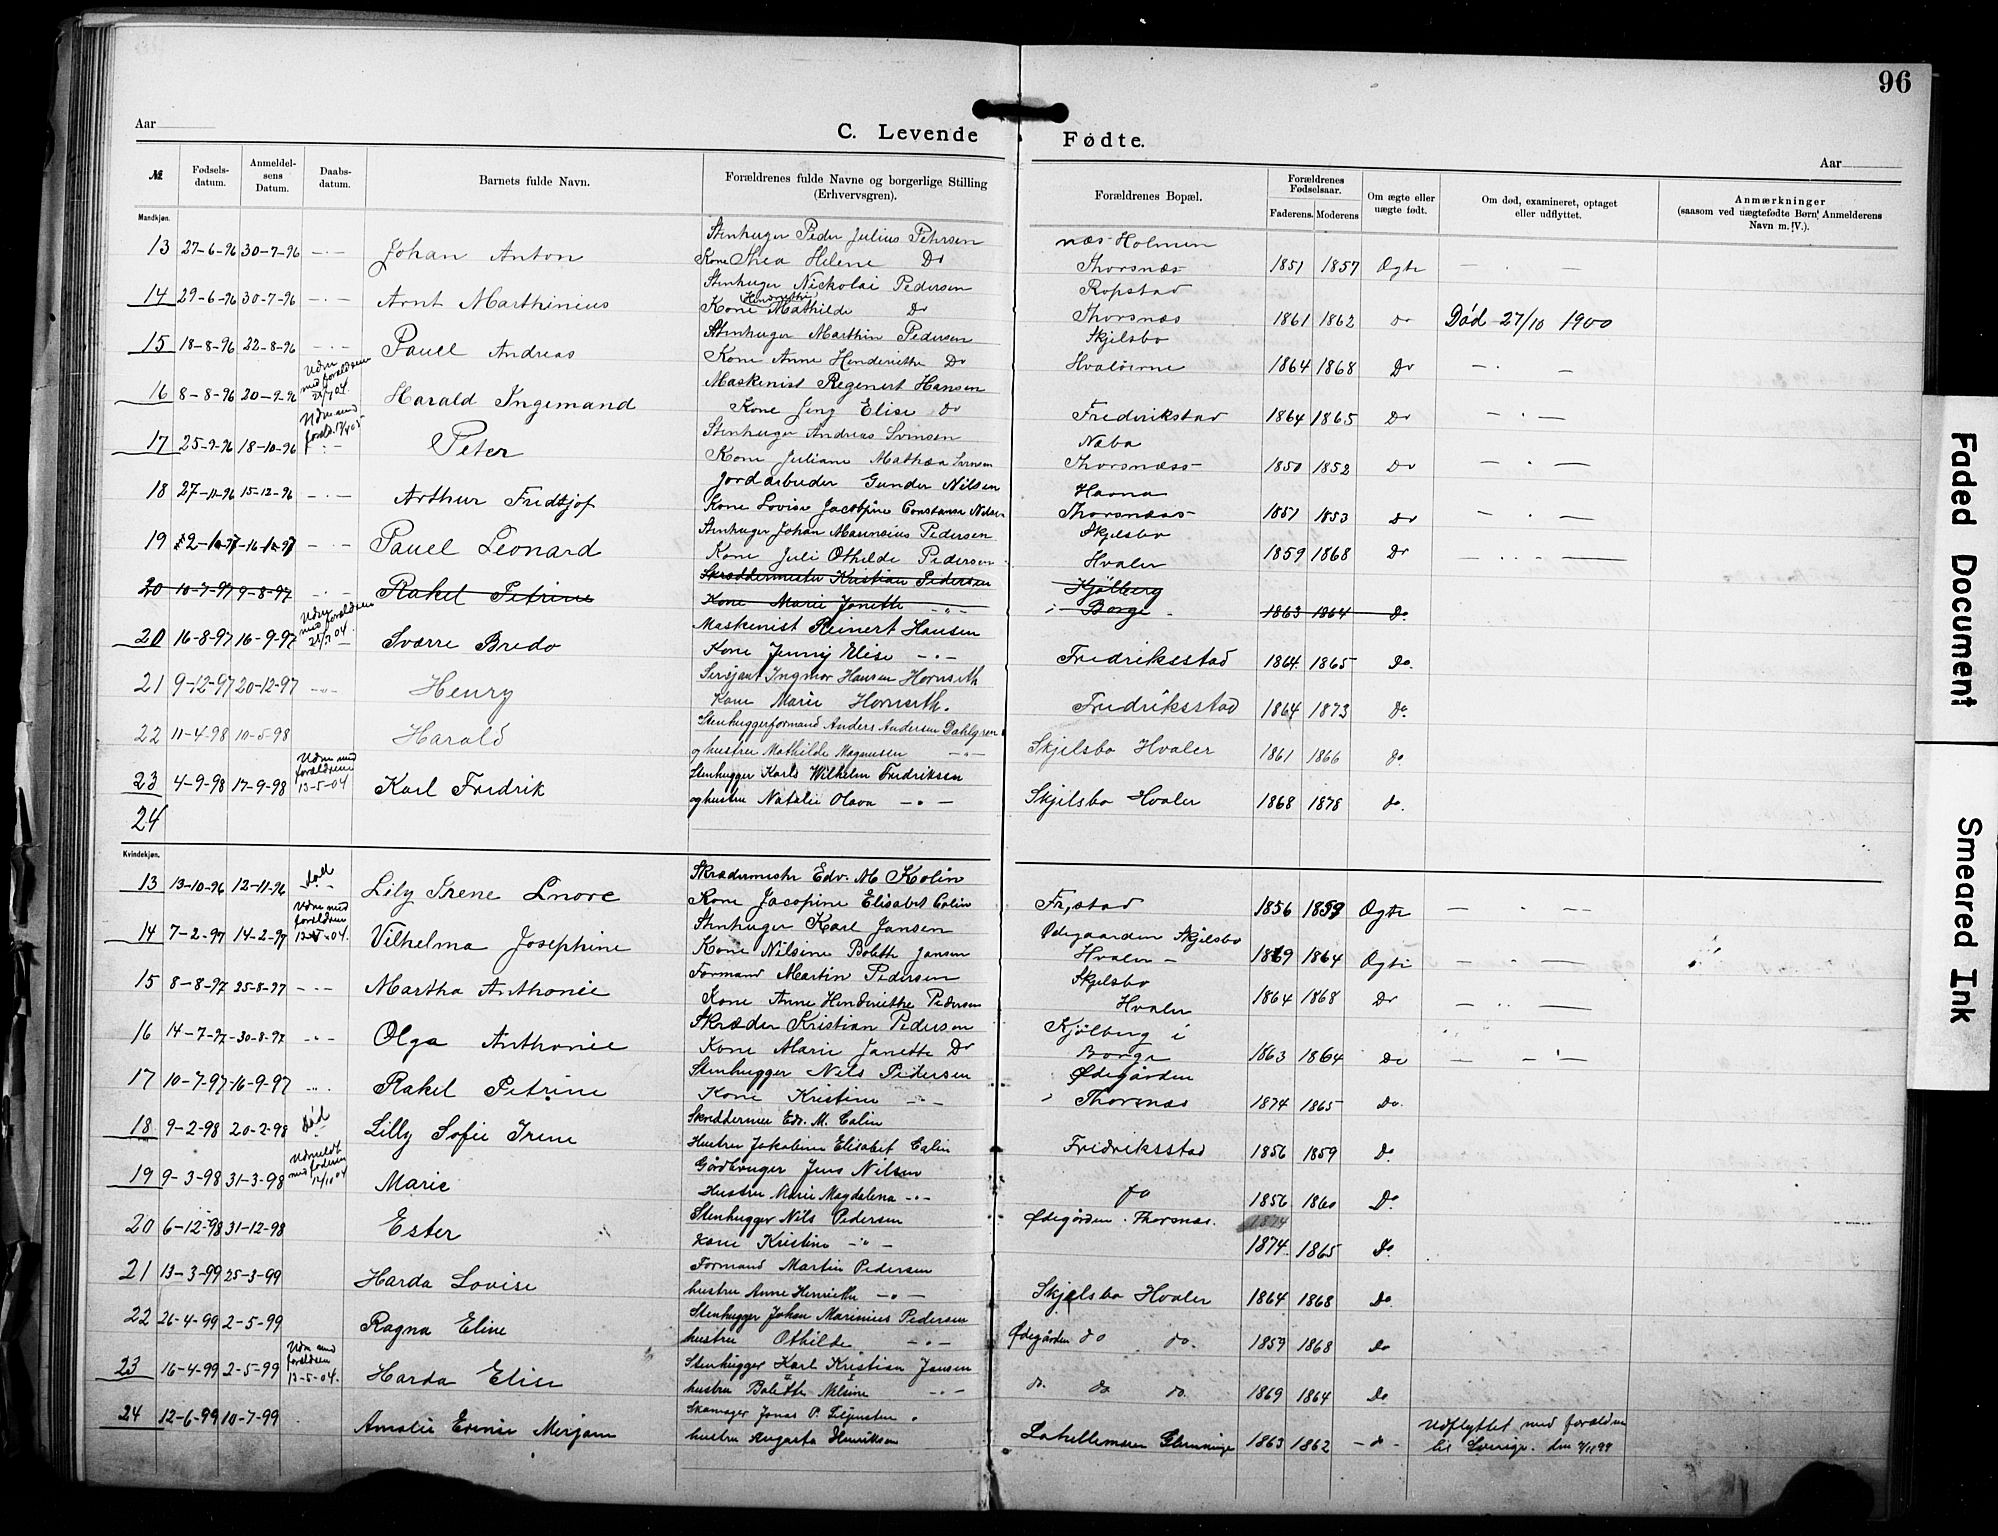 96
Aar
C. Levende Fødte.
Aar
№ Fødsels-datum. Anmeldelsens Datum. Daabs-datum. Barnets fulde Navn. Forældrenes fulde Navne og borgerlige Stilling (Erhvervsgren). Forældrenes Bopæl. Forældrenes Fødselsaar. Faderens. Moderens Om ægte eller uægte født. Om død, examineret, optaget eller udflyttet. Anmærkninger (saasom ved uægtefødte Børn, Anmelderens Navn m. V.).
Mandkjøn.
Stenhuger Peder Julius Petersen næs Holmen
13 27-6-96 30-7-96 - · - Johan Anton Kone Thea Helene Do Thorsnæs 1851 1857 Ægte — · —
Stenhuger Nickolai Pedersen Ropstad
14 29-6-96 30-7-96 - · - Arnt Marthinius Kone Henriette Mathilde Do Thorsnæs 1861 1862 Do Død 27/10 1900
Stenhuger Marthin Pedersen Skjelsbo
15 18-8-96 22-8-96 - · - Pauel Andreas Kone Anne Henderiethe Do Hvaløerne 1864 1868 Do — · —
Udm med forældrene 28/7 04. Maskenist Regenert Hansen
16 8-8-96 20-9-96 Harald Ingemand Kone Jeny Elise Do Frederikstad 1864 1865 Do — · —
Udm med foreld. Stenhuger Andreas Svensen Naba
17 25-9-96 18-10-96 Peter Kone Juliane Mathea Svensen Thorsnæss 1850 1852 Do — · —
Jordarbeider Gunder Nilsen Havna
18 27-11-96 15-12-96 - · - Arthur Fridtjof Kone Lovise Jacobine Constanse Nilsen Thorsnæss 1851 1853 Do — · —
Stenhuger Johan Marinius Pedersen Skjelsbo
19 Pauel Leonard Kone Juli Othilde Pedersen Hvaler 1859 1868 Do
Skræddermester Kristian Pedersen Kjølberg
20 10-7-97 9-8-97 - · - Rakel Petrine Kone Marie Janette - " - i Borge 1863 1864 Do.
Udm med forældrene 28/7 04. Maskenist Reinert Hansen
20 16-8-97 16-9-97 Sværre Bredo Kone Jenny Elise - " - Fredriksstad 1864 1865 Do.
Sersjant Ingmor Hansen Hornseth
21 9-12-97 20-12-97 Henry Kone Marie Hornseth. Fredriksstad 1864 1873 Do.
Stenhuggerformand Anders Andersen Dahlgren
22 11-4-98 10-5-98 Harald og hustru Mathilde Magnusen - " - Skjelsbo Hvaler 1861 1866 do
Udm med forældrene 13-5-04 Stenhugger Karls Wilhelm Fredriksen
23 4-9-98 17-9-98 Karl Fredrik og hustru Natalie Olava - " - Skjelsbo Hvaler 1868 1878 do.
24
Kvindekjøn.
død Skrædermester Edv. M Kolin
13 13-10-96 12-11-96 Lily Irene Lnore Kone Jacopine Elisabet Calin Fr,stad 1856 1859 Ægte
Udm med forældrene 13-5-04. Stenhuger Karl Jansen Ødegaarden Skjelsbo
14 7-2-97 14-2-97 Vilhelma Josephine Kone Nilsine Boleth Jansen Hvaler - 1869 1864 Ægte
Formand Martin Pedersen Skjelsbo
15 8-8-97 25-8-97 - · - Martha Anthonie Kone Anne Henderiethe Pedersen Hvaler 1864 1868 Do
Skræder Kristian Pedersen Kjølberg i
16 14-7-97 30-8-97 Olga Anthonie Kone Marie Janette Do Borge 1863 1864 Do
Stenhugger Nils Pedersen Ødegården
17 10-7-97 16-9-97 Rakel Petrine Kone Kristine - " - Thorsnæs 1874 1865 Do.
død Skræddermes Edv. M. Calin
18 9-2-98 20-2-98 Lilly Sofie Irene Hustru Jakobine Elisabet Calin Fredriksstad 1856 1859 Do
Udmeldt med faderen 12/10 04 Gårdbruger Jens Nilsen
19 9-3-98 31-3-98 Marie Hustru Marie Magdalena - " - do 1856 1860 Do.
Stenhugger Nils Pedersen Ødegården. Thorsnæs. 1874
20 6-12-98 31-12-98 Ester kone Kristine - " - 1874. 1865 Do
Formand Martin Pedersen
21 13-3-99 25-3-99 Harda Lovise hustru Anne Henriette - " - Skjelsbo Hvaler 1864 1868 Do
Stenhugger Johan Marinius Pedersen
22 26-4-99 2-5-99 Ragna Eline hustru Othilde - " - Ødegården do do. 1859 1868 do
Udm med forældren 13-5-04. Stenhugger Karl Kristian Jansen
23 16-4-99 2-5-99 Harda Elise hustru Bolette Nilsine - " - do. do do. 1869 1864 Do
Skomager Jonas P. Udflyttet med forældrene
24 12-6-99 10-7-99 Amalie Erinie Mirjam hustru Augusta Henriksen Glemminge 1863 1862 - do - til Sverige. den
Faded Document
Smeared Ink